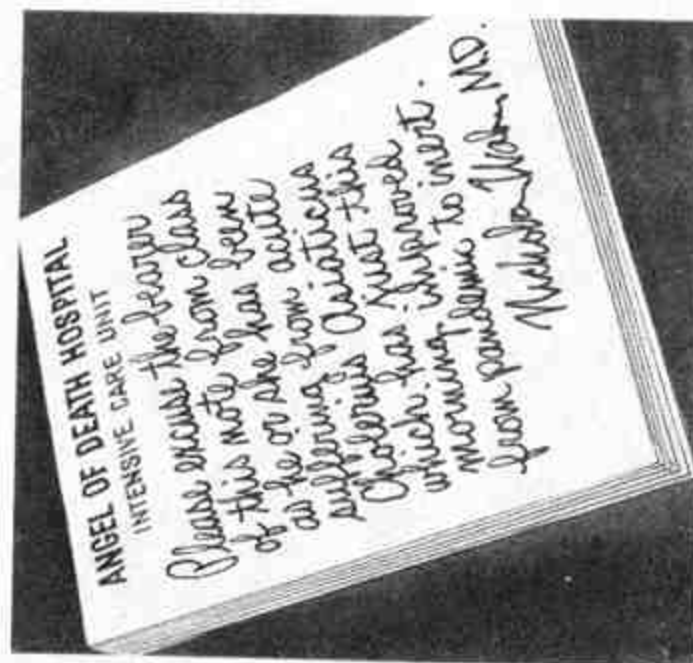 ANGEL OF DEATH HOSPITAL
INTENSIVE CARE UNIT
Please excuse the bearer
of this note from class
as he or she has been
suffering from acute
Cholerus Asiaticus
which has just this
morning improved
from pandemic to inert.
Nicholas M.D.